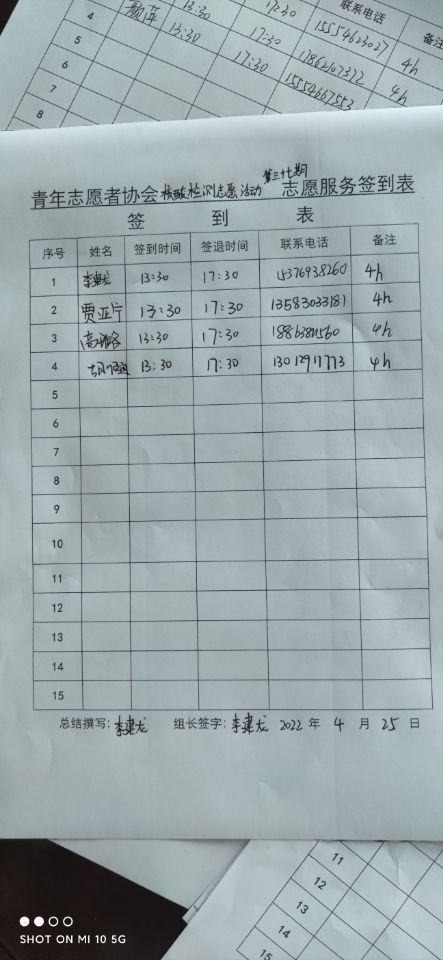 联系电话
备注
4 13:30 17:30 15554623027 4h
5 13:30 17:30 17862107372 4h
6 17:30 15554667553 4h
7
8
第三十七期
青年志愿者协会核酸检测志愿活动 志愿服务签到表
签 到 表
序号 姓名 签到时间 签退时间 联系电话 备注
1 李建龙 13:30 17:30 15376938260 4h
2 贾亚宁 13:30 17:30 13583033181 4h
3 13:30 17:30 4h
4 13:30 17:30 13012917773 4h
5
6
7
8
9
10
11
12
13
14
15
总结撰写: 李建龙 组长签字: 李建龙 2022 年 4 月 25 日
11
12
13
14
15
SHOT ON MI 10 5G